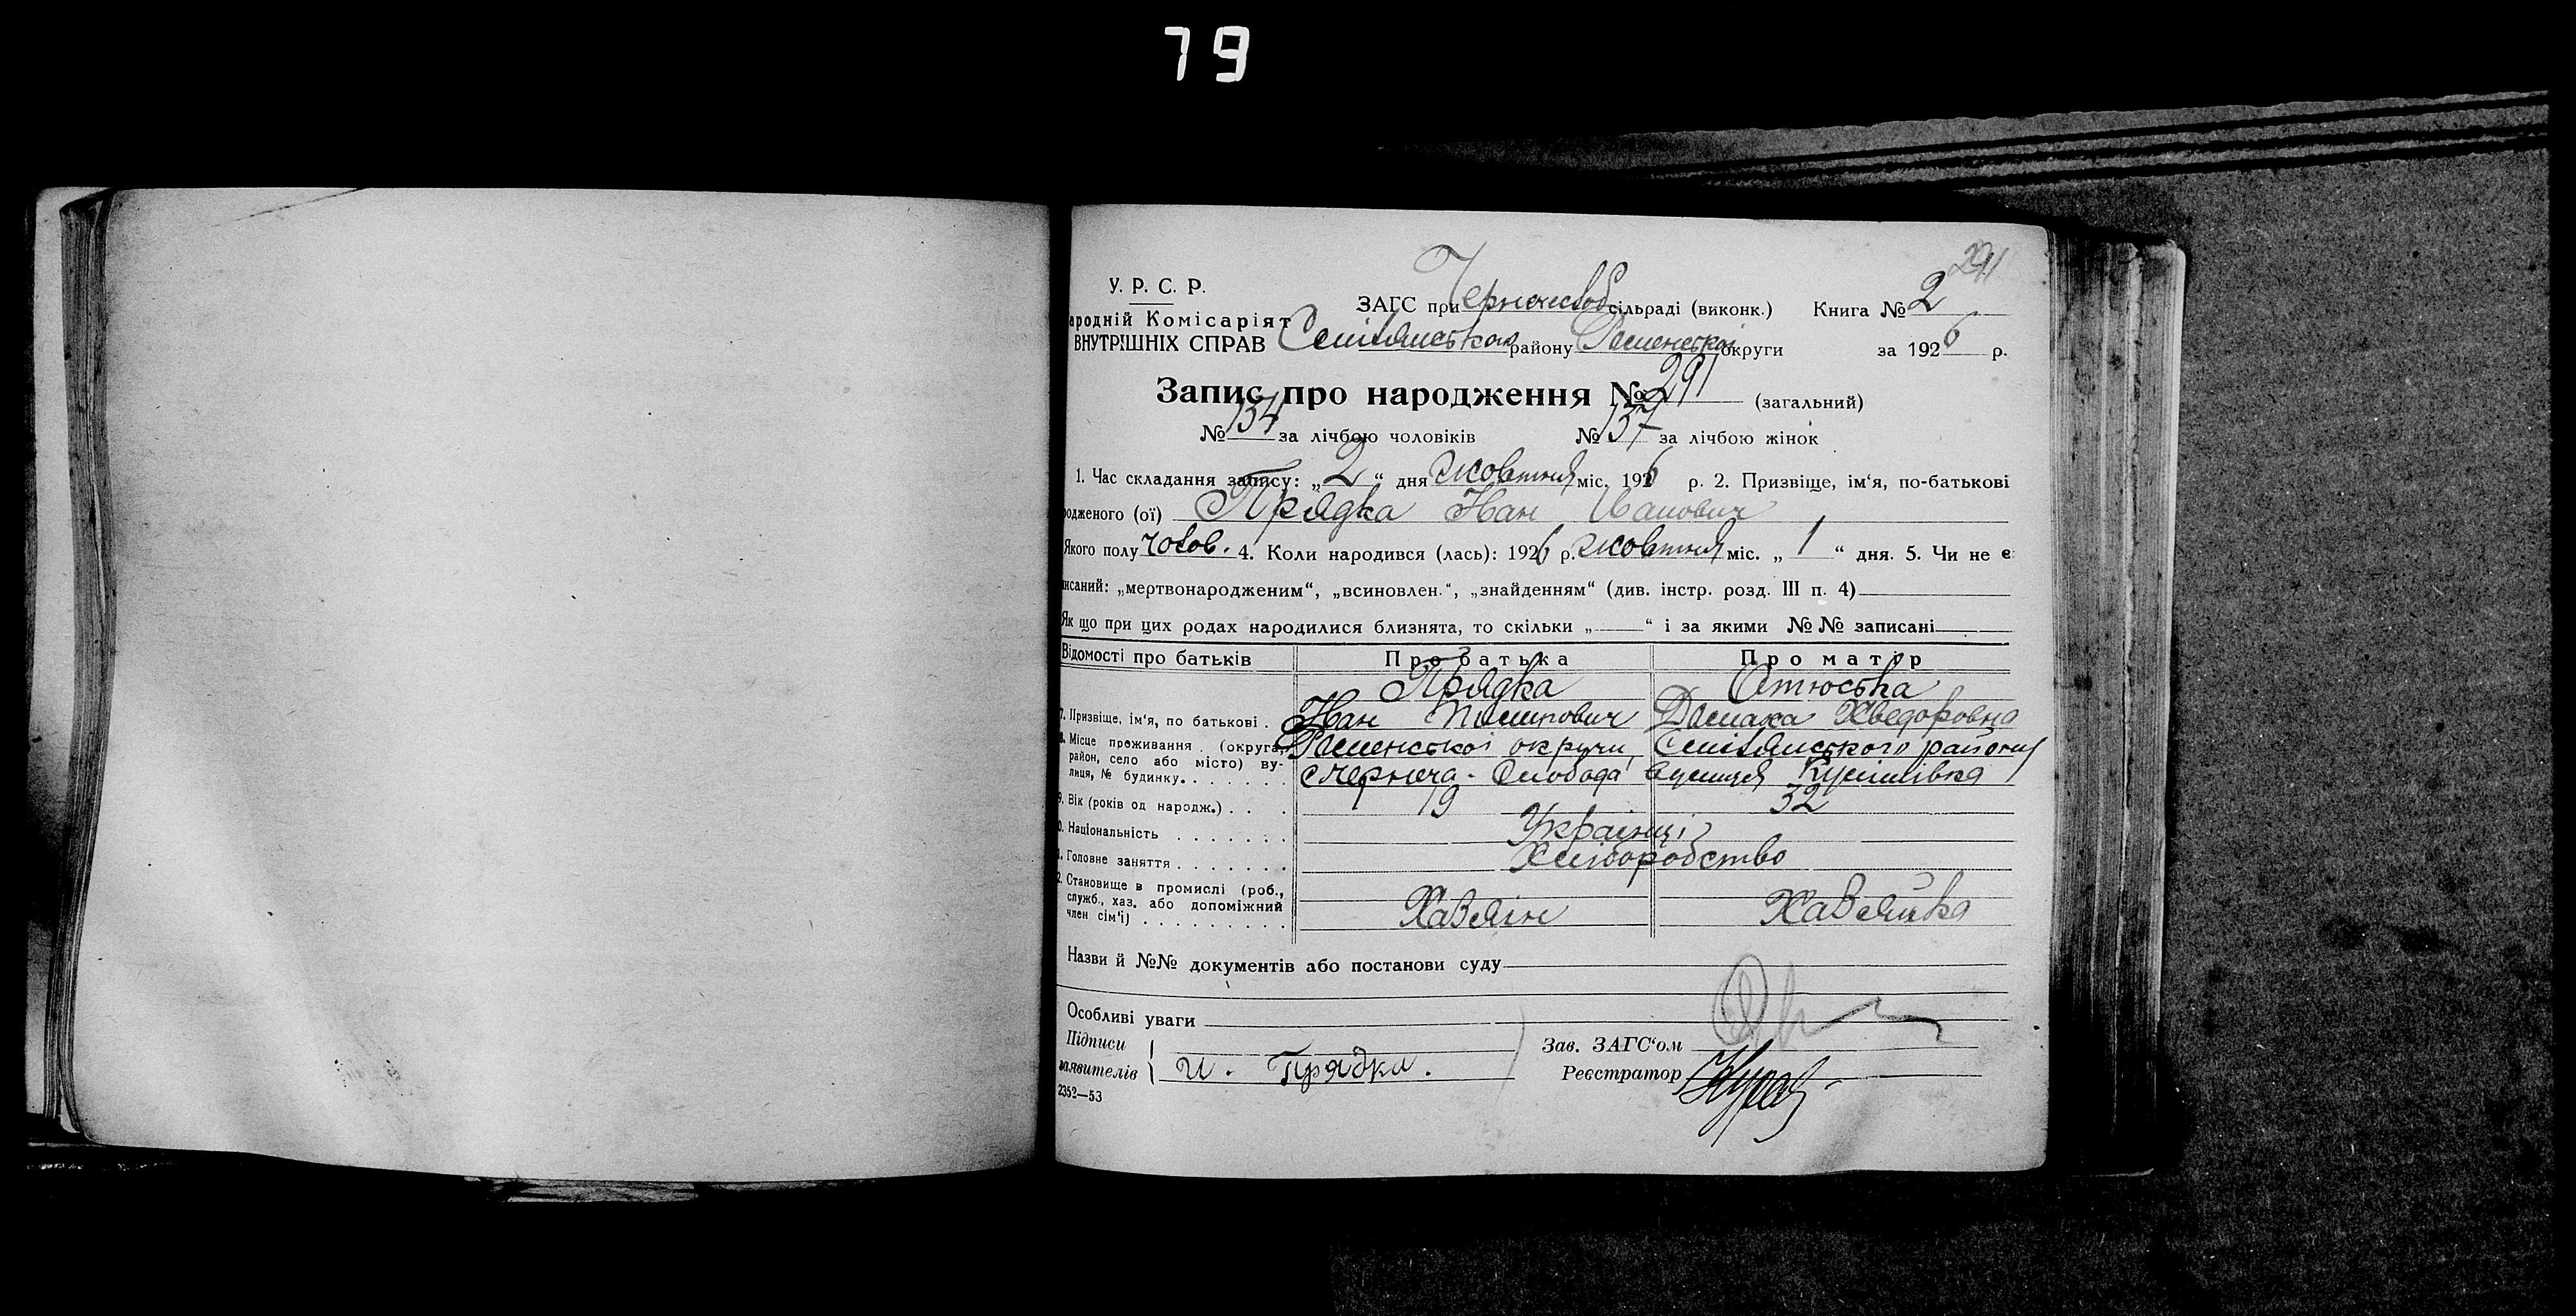 79
291
У. Р. С. Р.
ЗАГС при Чернечеслоб сільраді (виконк.) Книга № 2
ародній Комісаріят
ВНУТРІШНІХ СПРАВ Смілянського району Роменської округи за 1926 р.
Запис про народження № 291 (загальний)
№ 154 за лічбою чоловіків № 137 за лічбою жінок
1. Час складання запису: „2“ дня жовтня міс. 1926 р. 2. Призвіще, ім‘я, по-батькові
родженого (ої) Прядка Іван Іванович
Якого полу чолов. 4. Коли народився (лась): 1926 р. жовтня міс. „1“ дня. 5. Чи не є
писаний: „мертвонародженим“, „всиновлен.“, „знайденням“ (див. інстр. розд. III п. 4)
Як що при цих родах народилися близнята, то скільки „ “ і за якими №№ записані
Відомості про батьків Про батька Про матір
Прядка
7. Призвіще, ім‘я, по батькові . Іван Пилипович Домаха Хведоровна
8. Місце проживання (округа, Роменської округи, Смілянського району
район, село або місто) ву-
лиця, № будинку. . . . . . . с Чернеча-Слобода вулиця
9. Вік (років од народж.) . . . 19 32
0. Національність . . . . . . Українці
1. Головне заняття . . . . . . . Хліборобство
2. Становище в промислі (роб.,
служб., хаз. або допоміжний
член сім‘ї) . . . . . . . . . Хазяїн Хазяйка
Назви й №№ документів або постанови суду
Особливі уваги
Підписи Зав. ЗАГС‘ом
заявителів и. Прядка. Реєстратор
2352—53